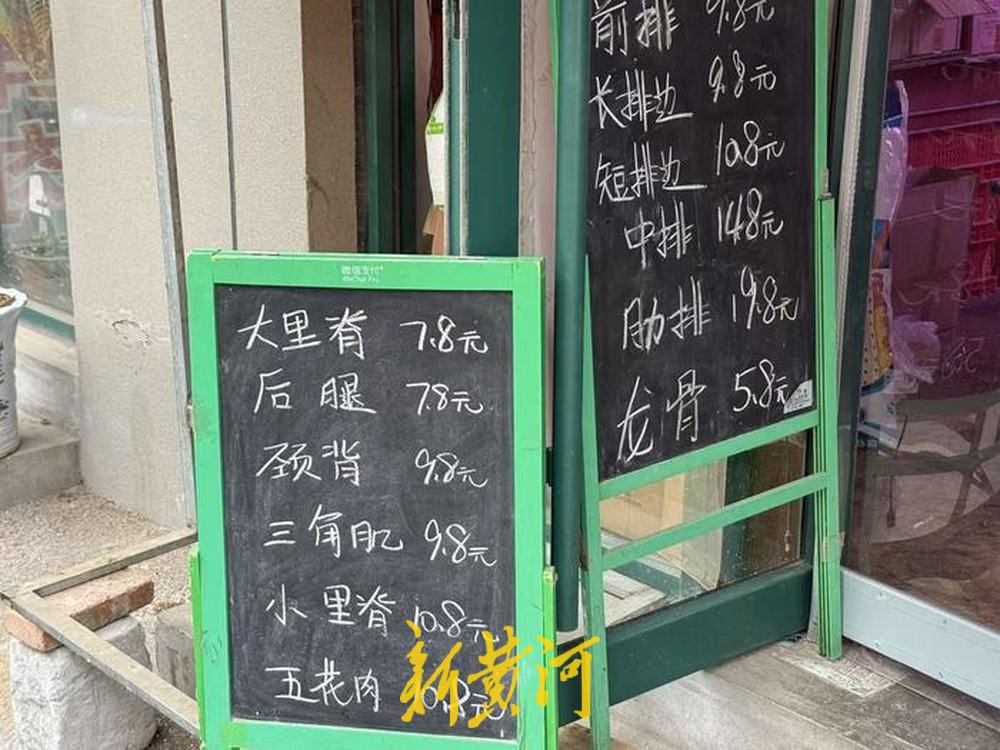 微信支付
WeChat Pay
大里脊 7.8元
后腿 7.8元
颈背 9.8元
三角肌 9.8元
小里脊 10.8元
五花肉 10.8元
前排 9.8元
长排边 9.8元
短排边 10.8元
中排 14.8元
肋排 19.8元
龙骨 5.8元
新黄河